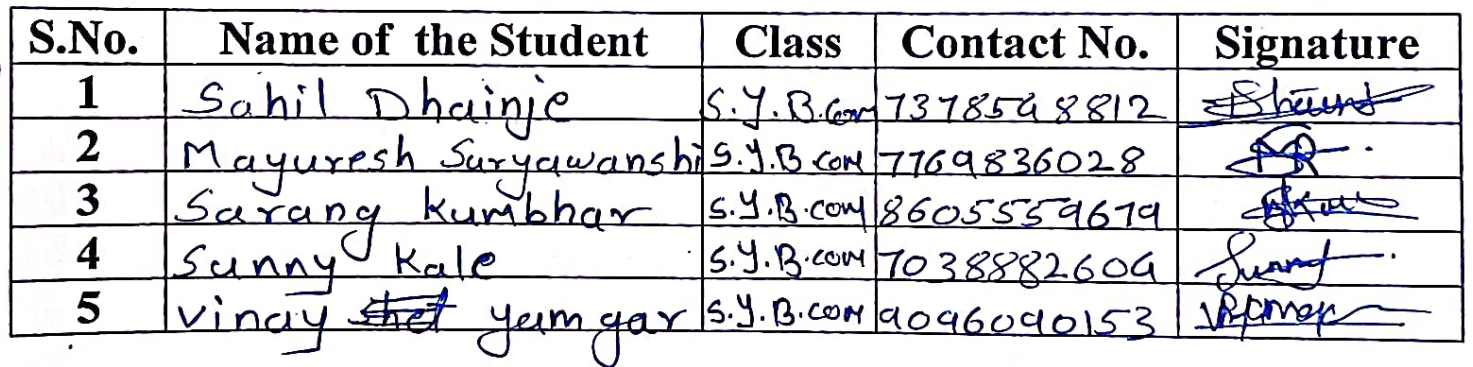 S.No. Name of the Student Class Contact No. Signature
1 Sahil Dhainje S.Y.B.Com 7378598812
2 Mayuresh Suryawanshi S.Y.B com 7769836028
3 Sarang Kumbhar S.Y.B.com 8605559679
4 Sunny Kale S.Y.B.com 7038882609 Sunny
5 Vinay yamgar S.Y.B.com 9096090153